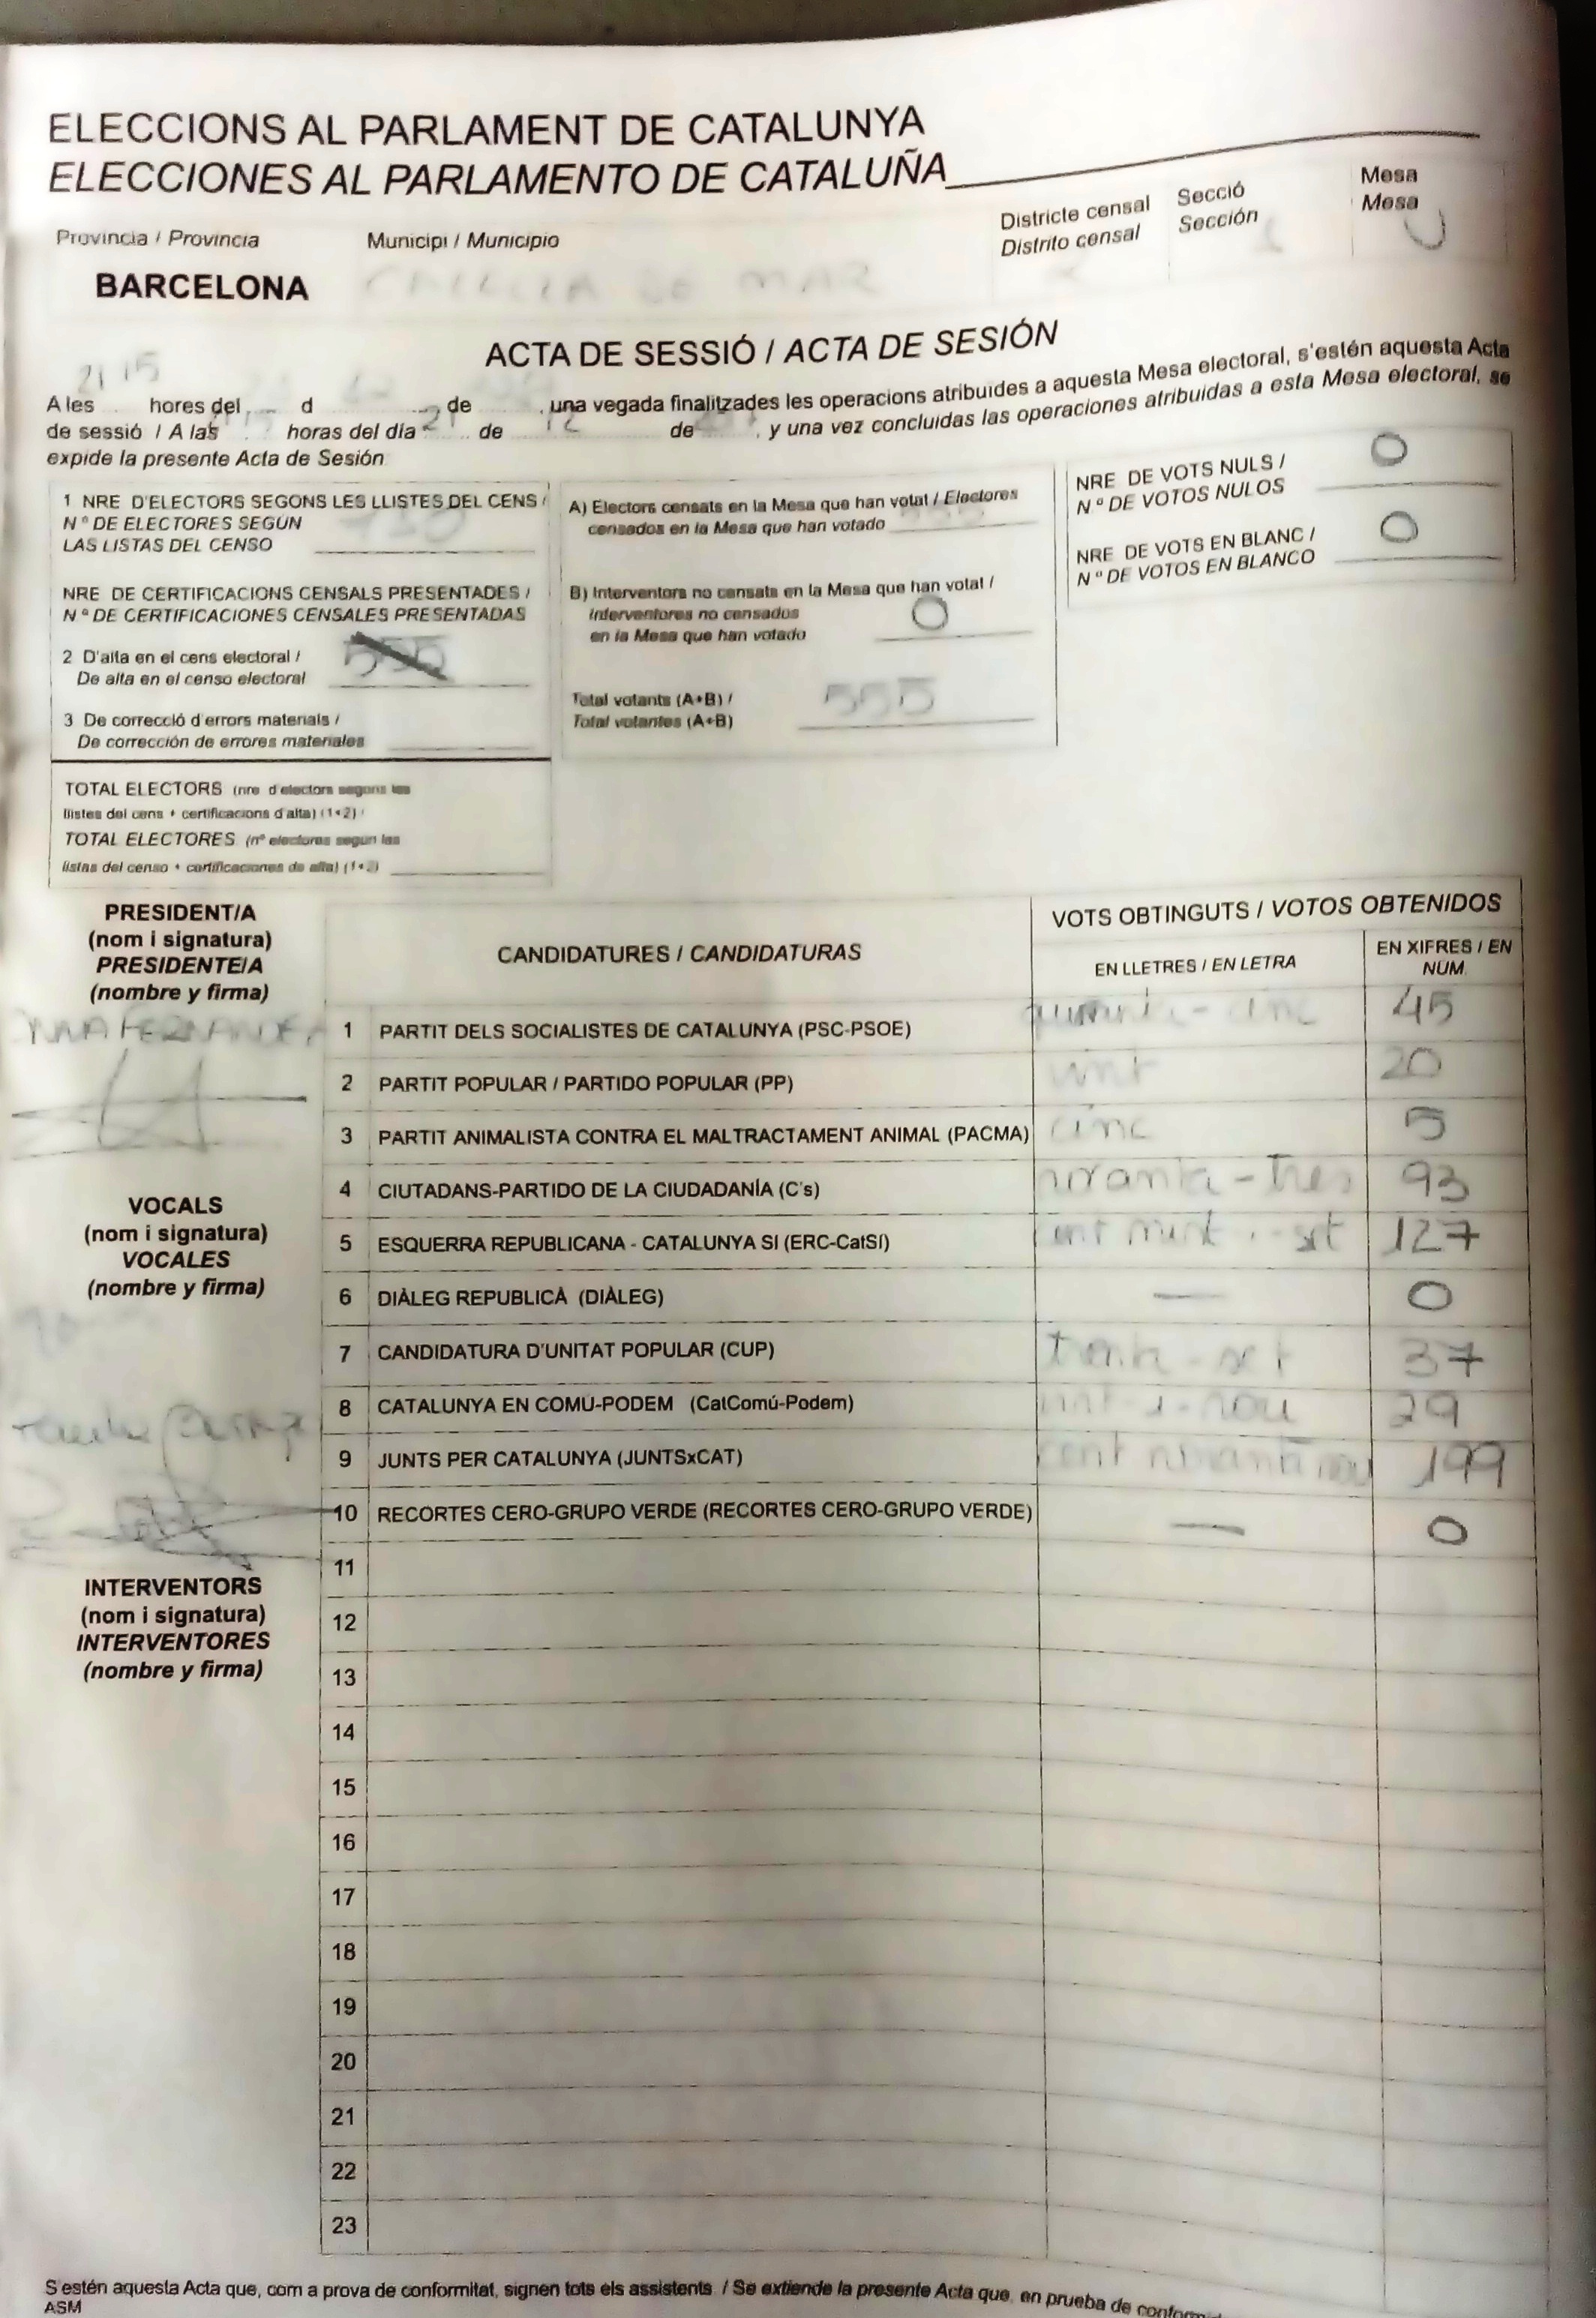 ELECCIONS AL PARLAMENT DE CATALUNYA
ELECCIONES AL PARLAMENTO DE CATALUÑA
Provincia / Provincia
Municipi / Municipio
Districte censal
Distrito censal
Secció
Sección
Mesa
Mesa
BARCELONA
DE MAR
U
ACTA DE SESSIÓ / ACTA DE SESIÓN
21 15
A les hores del d de , una vegada finalitzades les operacions atribuides a aquesta Mesa electoral, s'estén aquesta Acta
de sessió / A las horas del día 21 de 12 de , y una vez concluidas las operaciones atribuidas a esta Mesa electoral, se
expide la presente Acta de Sesión
1 NRE D'ELECTORS SEGONS LES LLISTES DEL CENS /
Nº DE ELECTORES SEGÚN
LAS LISTAS DEL CENSO
NRE DE CERTIFICACIONS CENSALS PRESENTADES /
Nº DE CERTIFICACIONES CENSALES PRESENTADAS
2 D'alta en el cens electoral /
De alta en el censo electoral
555
3 De correcció d'errors materials /
De corrección de errores materiales
TOTAL ELECTORS (nre d'electors segons les
llistes del cens + certificacions d'alta) (1+2) /
TOTAL ELECTORES (nº electores según las
listas del censo + certificaciones de alta) (1+2)
A) Electors censats en la Mesa que han votat / Electores
censados en la Mesa que han votado
B) Interventors no censats en la Mesa que han votat /
Interventores no censados
en la Mesa que han votado 0
Total votants (A+B) /
Total votantes (A+B) 555
NRE DE VOTS NULS /
Nº DE VOTOS NULOS 0
NRE DE VOTS EN BLANC /
Nº DE VOTOS EN BLANCO 0
PRESIDENT/A
(nom i signatura)
PRESIDENTE/A
(nombre y firma)
FERNANDEZ
VOCALS
(nom i signatura)
VOCALES
(nombre y firma)
INTERVENTORS
(nom i signatura)
INTERVENTORES
(nombre y firma)
CANDIDATURES / CANDIDATURAS
VOTS OBTINGUTS / VOTOS OBTENIDOS
EN LLETRES / EN LETRA
EN XIFRES / EN
NÚM.
1 PARTIT DELS SOCIALISTES DE CATALUNYA (PSC-PSOE) 45
2 PARTIT POPULAR / PARTIDO POPULAR (PP) vint 20
3 PARTIT ANIMALISTA CONTRA EL MALTRACTAMENT ANIMAL (PACMA) cinc 5
4 CIUTADANS-PARTIDO DE LA CIUDADANÍA (C's) noranta-tres 93
5 ESQUERRA REPUBLICANA - CATALUNYA SI (ERC-CatSí) cent vint-i-set 127
6 DIÀLEG REPUBLICÀ (DIÀLEG) — 0
7 CANDIDATURA D'UNITAT POPULAR (CUP) trenta-set 37
8 CATALUNYA EN COMÚ-PODEM (CatComú-Podem) vint-i-nou 29
9 JUNTS PER CATALUNYA (JUNTSxCAT) cent noranta nou 199
10 RECORTES CERO-GRUPO VERDE (RECORTES CERO-GRUPO VERDE) — 0
11
12
13
14
15
16
17
18
19
20
21
22
23
S'estén aquesta Acta que, com a prova de conformitat, signen tots els assistents / Se extiende la presente Acta que, en prueba de
ASM